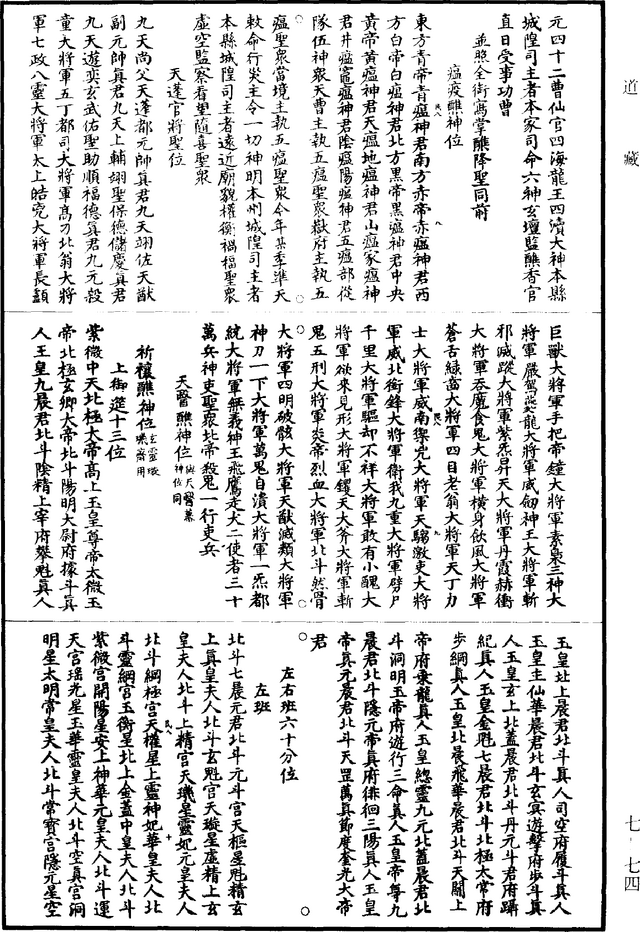 道藏
七·七四
元四十二曹仙官四海龍王四瀆大神本縣
城隍司主者本家司命六神玄壇監醮香官
直日受事功曹
並照全銜寫掌醮降聖同前
瘟疫醮神位
東方青帝青瘟神君南方赤帝赤瘟神君西
方白帝白瘟神君北方黑帝黑瘟神君中央
黃帝黃瘟神君天瘟地瘟神君山瘟家瘟神
君井瘟竈瘟神君陰瘟陽瘟神君五瘟部從
隊伍神衆天曹主執五瘟聖衆嶽府主執五
瘟聖衆當境主執五瘟聖衆今年某季準天
敕命行災主令一切神明本州城隍司主者
本縣城隍司主者遠近廟貌權衡禍福聖衆
虛空監察看望隨喜聖衆
天蓬官將聖位
九天尚父天蓬都元帥真君九天翊佐天猷
副元帥真君九天上輔翊聖保德儲慶真君
九天遊奕玄武佑聖助順福德真君九元殺
童大將軍五丁都司大將軍高刁北翁大將
軍七政八靈大將軍太上皓兇大將軍長顱
巨獸大將軍手把帝鐘大將軍素梟三神大
將軍嚴駕夔龍大將軍威劒神王大將軍斬
邪滅蹤大將軍紫炁昇天大將軍丹霞赫衝
大將軍吞魔食鬼大將軍橫身飲風大將軍
蒼舌綠齒大將軍四目老翁大將軍天丁力
士大將軍威南禦兇大將軍天騶激吏大將
軍威北銜鋒大將軍衛我九重大將軍劈尸
千里大將軍驅却不祥大將軍敢有小醜大
將軍欲來見形大將軍鑊天大斧大將軍斬
鬼五刑大將軍炎帝烈血大將軍北斗然骨
大將軍四明破骸大將軍天猷滅類大將軍
神刀一下大將軍萬鬼自潰大將軍一炁都
統大將軍無義神王飛鷹走犬二使者三十
萬兵神吏聖衆北帝殺鬼一行吏兵
天醫醮神位與天醫幕神位同
祈禳醮神位玄靈璇璣齋用
上御筵十三位
紫微中天北極太帝高上玉皇尊帝太微玉
帝北極玄卿大帝北斗陽明大尉府據斗真
人王皇九晨君北斗陰精上宰府攀魁真人
玉皇北上晨君北斗真人司空府履斗真人
玉皇主仙華晨君北斗玄冥遊擊府步斗真
人玉皇玄上北蓋晨君北斗丹元斗君府躡
紀真人玉皇金魁七晨君北斗北極太常府
步綱真人玉皇北晨飛華晨君北斗天關上
帝府乘龍真人玉皇總靈九元北蓋晨君北
斗洞明玉帝府遊行三命真人玉皇帝尊九
晨君北斗隱元帝真府徘徊三陽真人玉皇
帝真元晨君北斗天罡萬真節度奎光大帝
君
左右班六十分位
左班
北斗七晨元君北斗元斗宮天樞星魁精玄
上真皇夫人北斗玄魁宮天璇星虛精上玄
皇夫人北斗上精宮天璣星靈妃元皇夫人
北斗綱極宮天權星上靈神妃華皇夫人北
斗靈綱宮玉衡星北上金蓋中皇夫人北斗
紫微宮開陽星安上神華元皇夫人北斗運
天宮瑶光星玉華靈皇夫人北斗空真宮洞
明星太明常皇夫人北斗常寶宮隱元星空